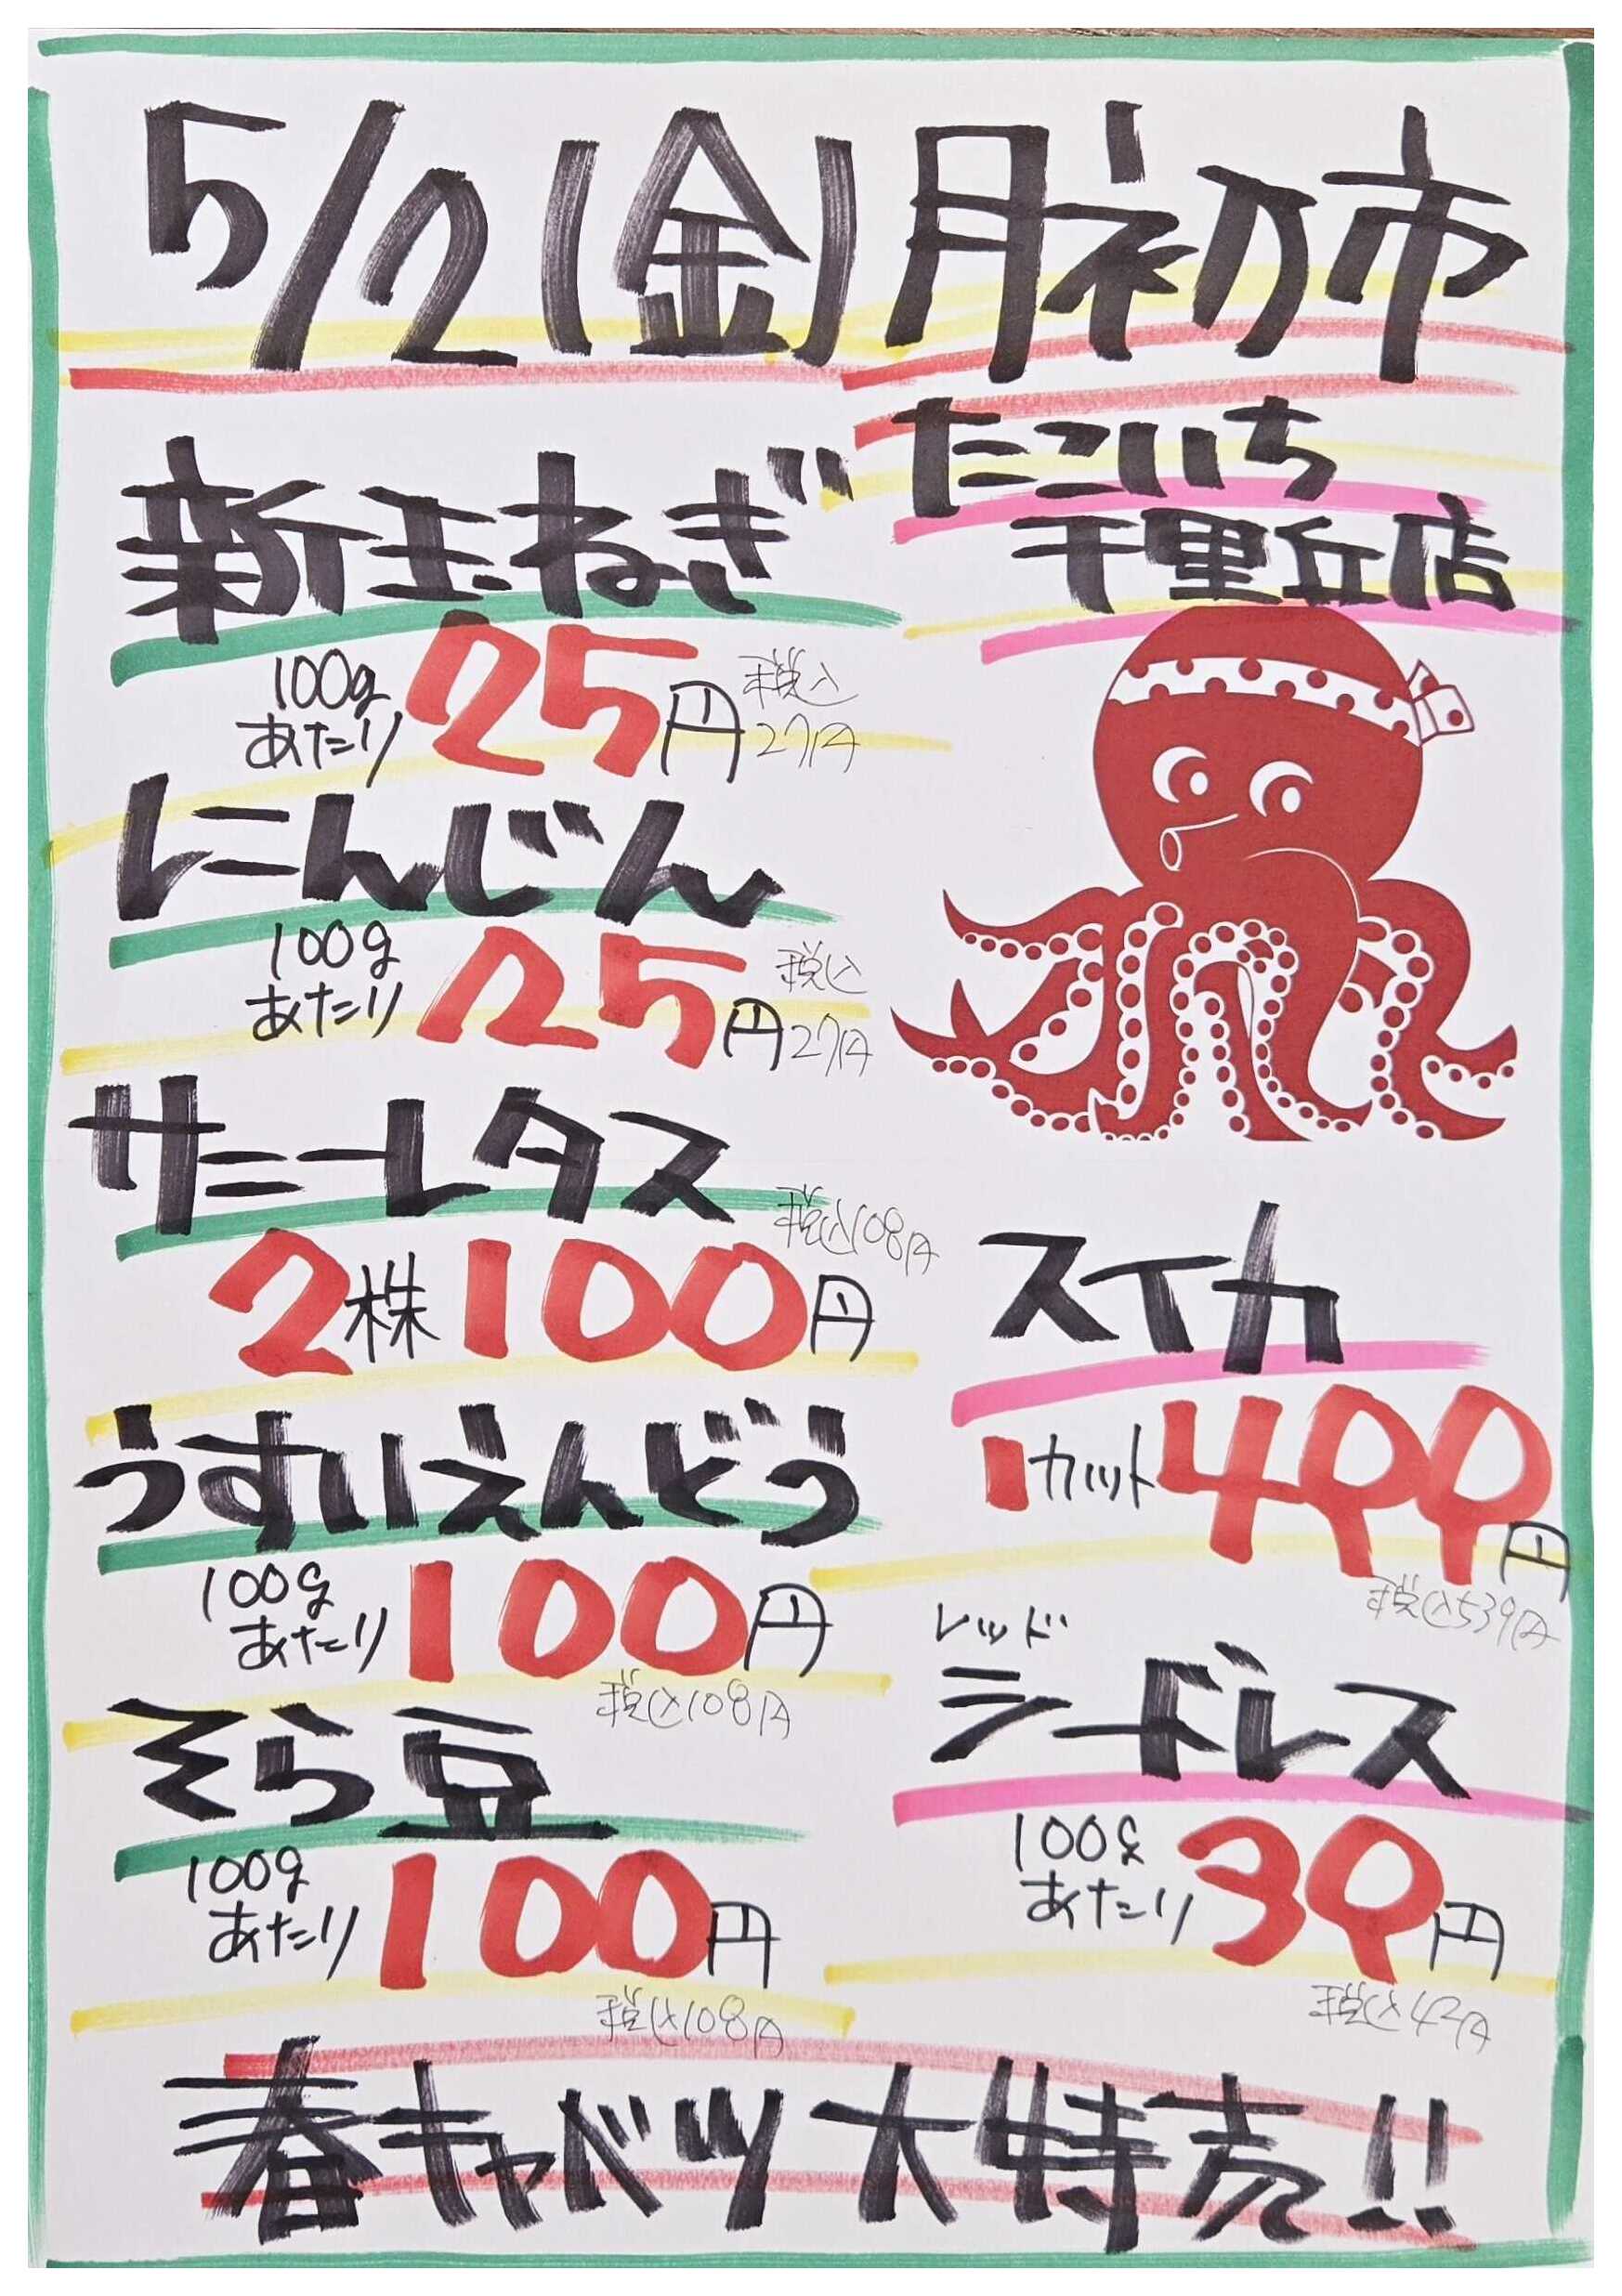 5/2(金)月初市
たこいち
千里丘店
新玉ねぎ
100g
あたり 25円 税込
27円
にんじん
100g
あたり 25円 税込
27円
サニーレタス
税込108円
2株100円
うすいえんどう
100g
あたり 100円
税込108円
そら豆
100g
あたり 100円
税込108円
スイカ
1カット499円
税込539円
レッド
シードレス
100g
あたり 39円
税込42円
春キャベツ大特売!!